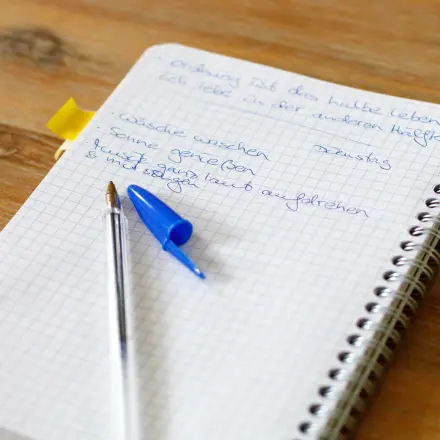 · Ordnung ist das halbe Leben
Ich lebe in der anderen Hälfte
· Wäsche waschen Dienstag
· Sonne genießen
· Musik ganz laut aufdrehen
& mitsingen